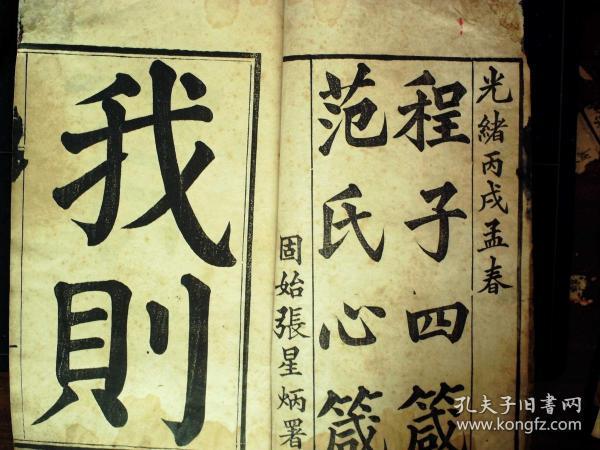 光緒丙戌孟春
程子四箴
范氏心箴
固始張星炳署
我則
孔夫子旧书网
www.kongfz.com